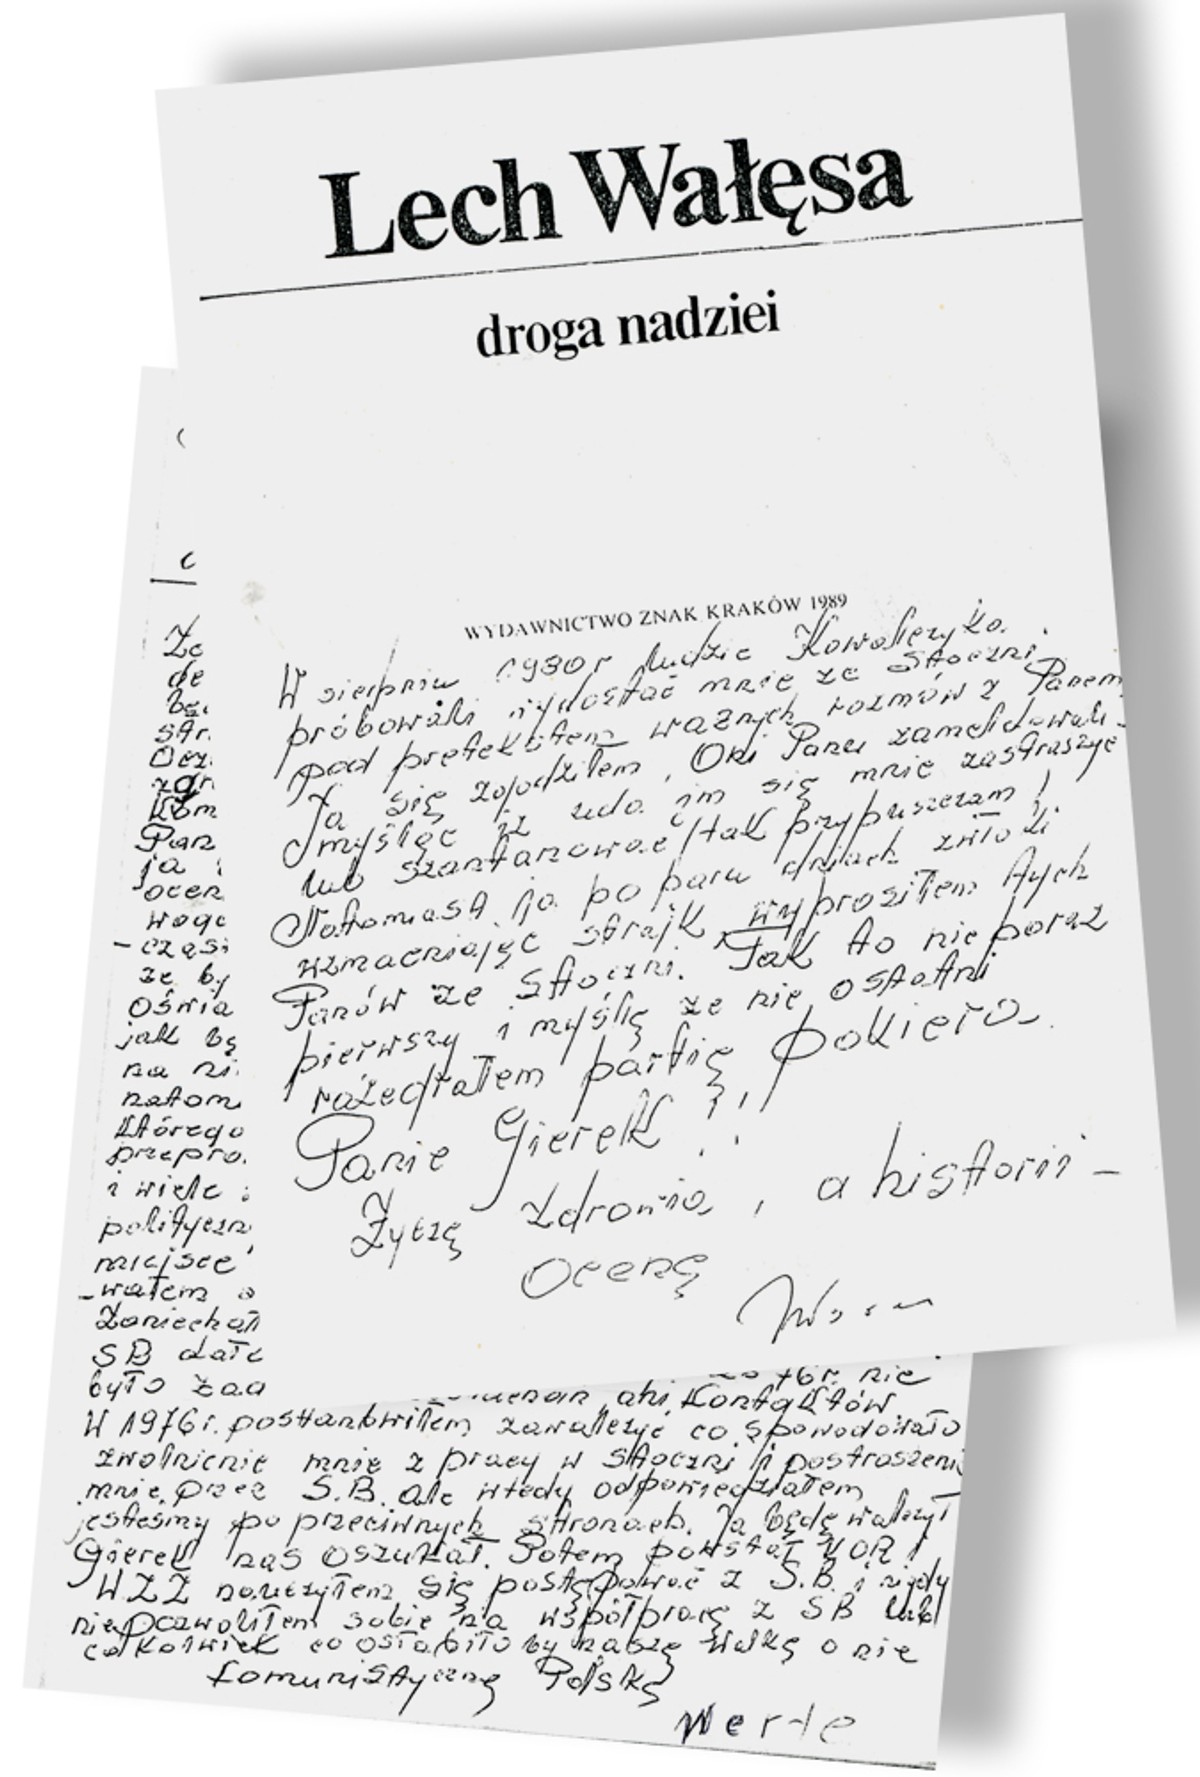 Lech Wałęsa
droga nadziei
WYDAWNICTWO ZNAK KRAKÓW 1989
W sierpniu 1980 r ludzie Kowalczyka
próbowali wydostać mnie ze Stoczni
pod pretekstem ważnych rozmów z Panem
Ja się zgodziłem, Oni Panu zameldowali
myśląc iż uda im się mnie zastraszyć
lub szantarzować /tak przypuszczam/
Natomiast ja po paru dniach zwłoki
wzmacniając strajk "wyprosiłem tych
Panów ze Stoczni. Tak to nie poraz
pierwszy i myślę ze nie ostatni
rozegrałem partię pokiera
Panie Gierek!!
Życzę zdrowia, a historii –
ocenę
Że
de
be
str.
Dez.
zgr
Kom
Pan
ja
ocen
woge
– częs
że by
Oświa
jak bę
na ni
natom
którego
przepro.
i wiele
polityczn
miejsce
– wałem
Zaniechał
SB dało
było zaa
76r. nie
ani kontaktów.
W 1976 r. postanowiłem zawalczyć co spowodowało
zwolnienie mnie z pracy w Stoczni i postraszeni
mnie przez S.B. ale wtedy odpowiedziałem
jesteśmy po przeciwnych stronach. Ja będę walczył
Gierek nas oszukał. Potem powstał KOR i
WZZ nauczyłem się postępować z S.B. i nigdy
nie pozwoliłem sobie na współpracę z SB lub
cokolwiek co osłabiło by naszą walkę o nie
komunistyczną Polskę